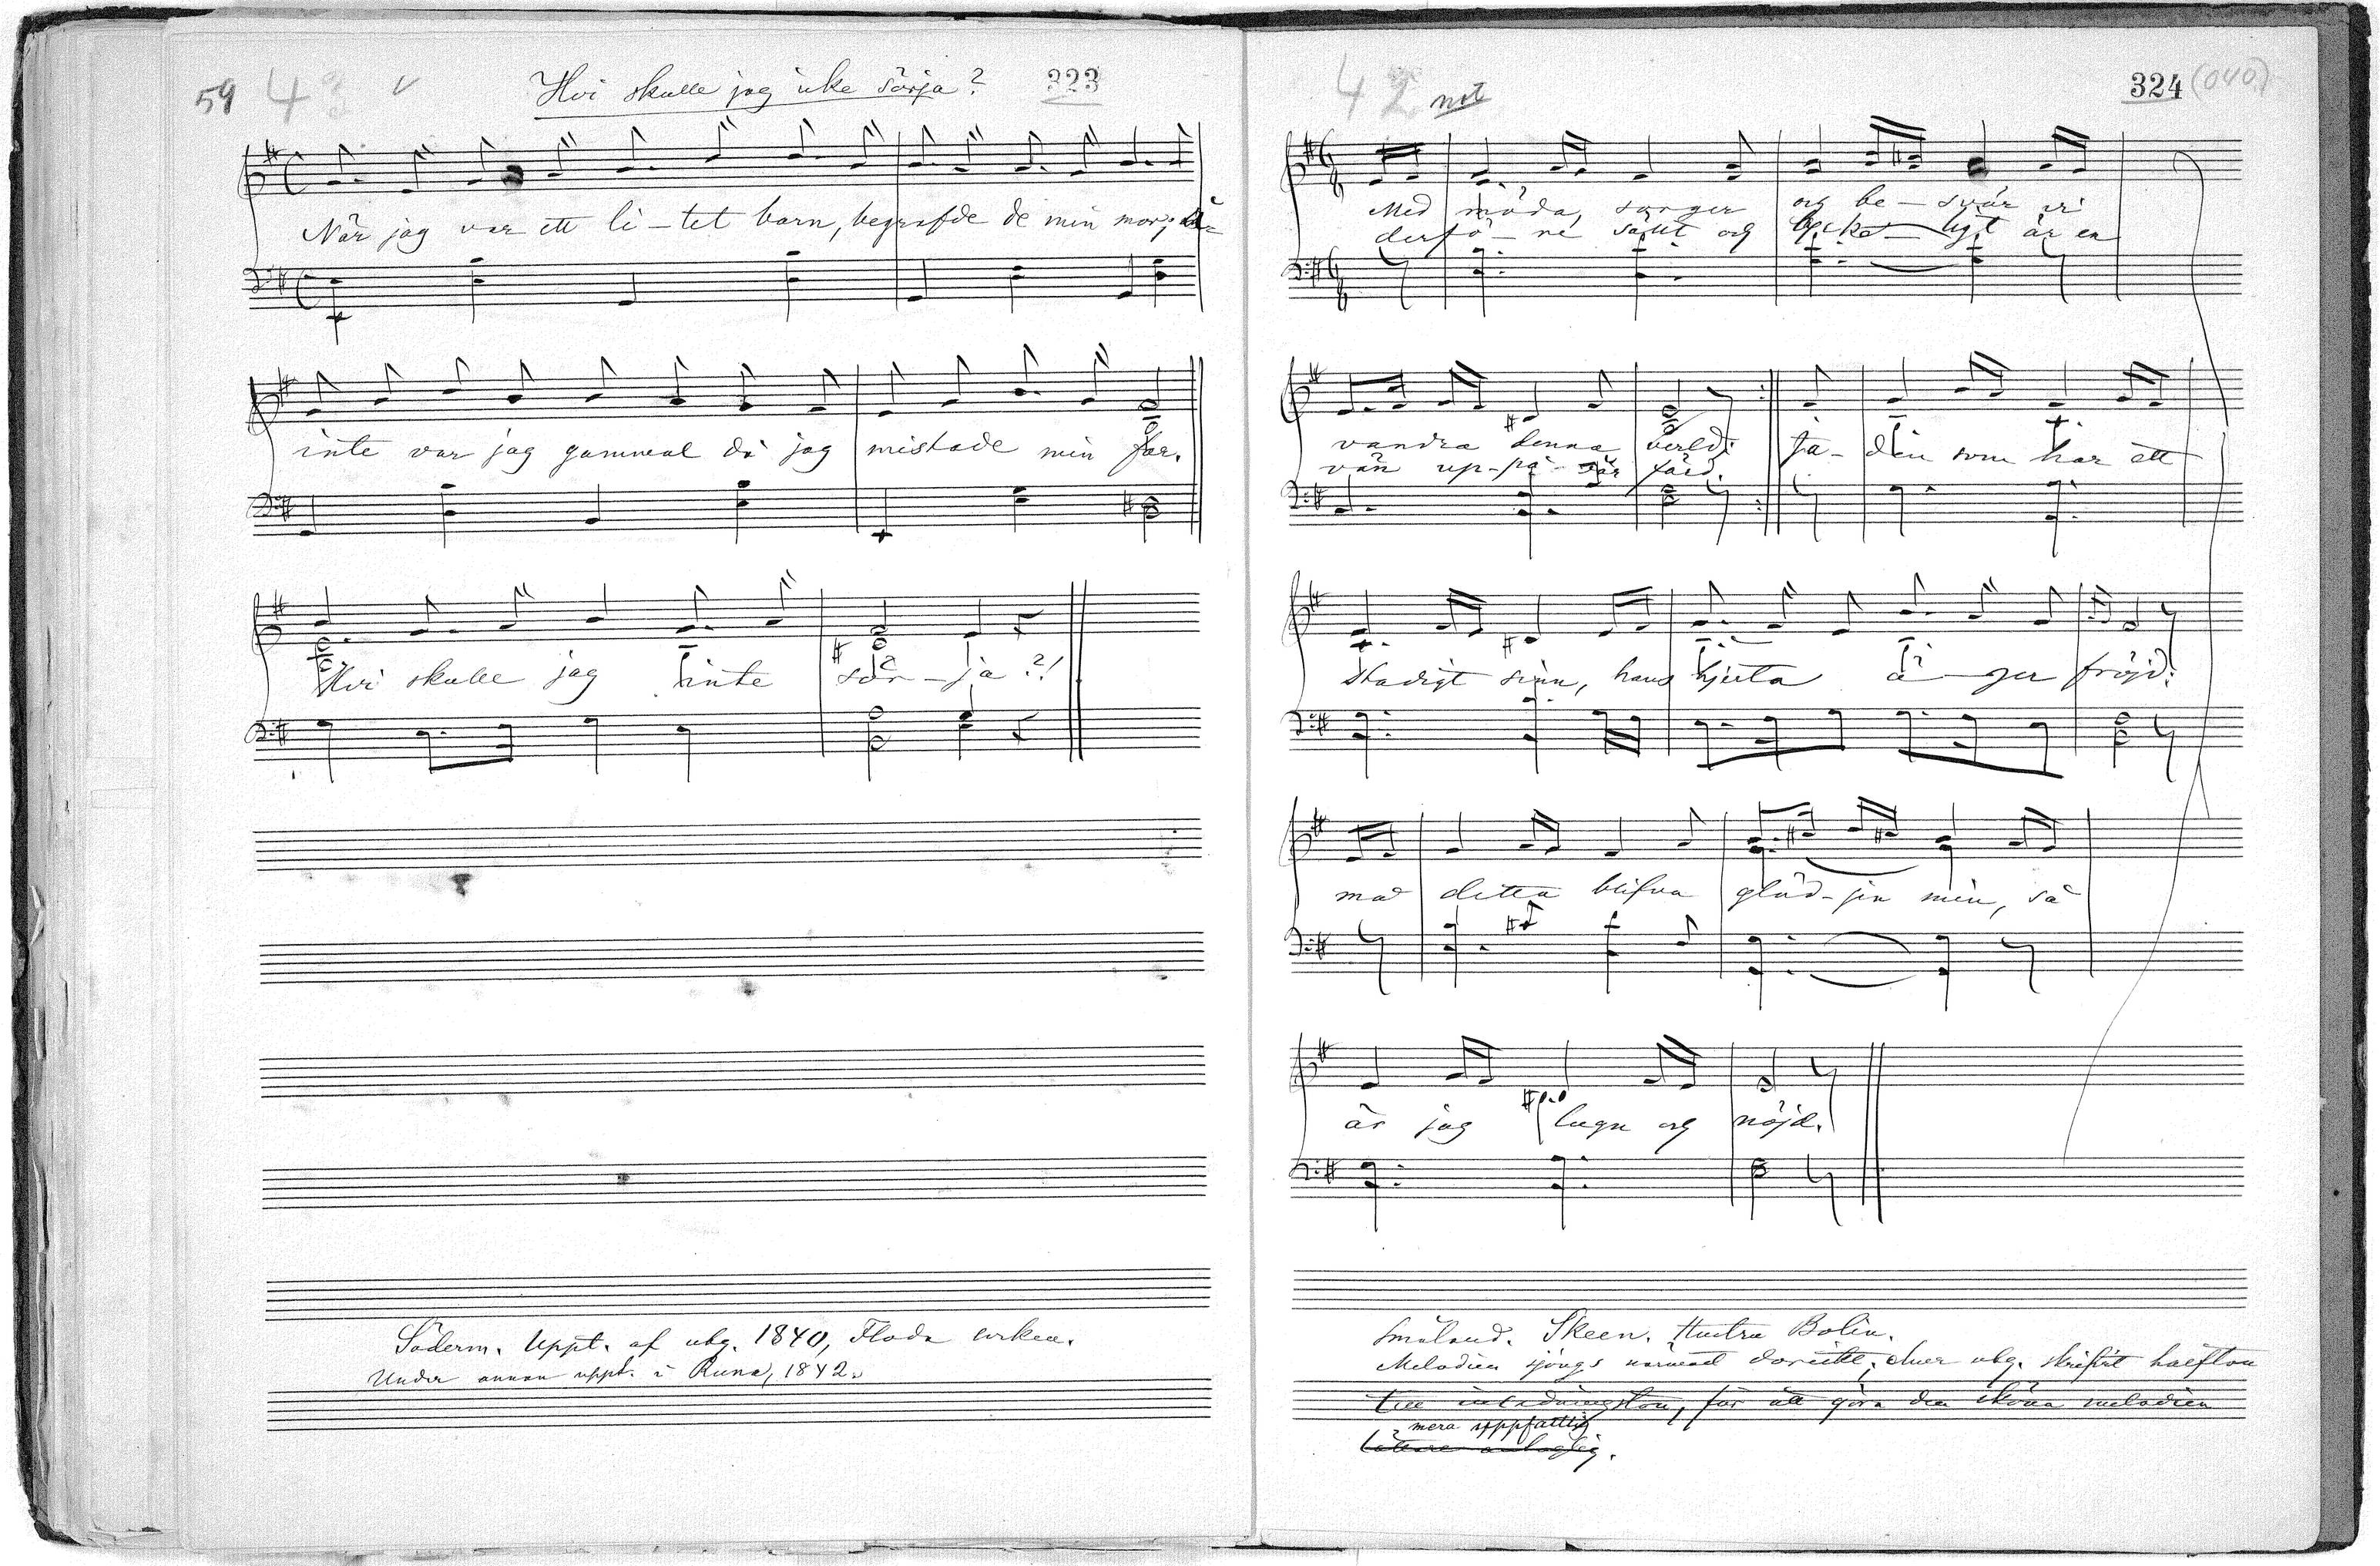 59 42 Hvi skulle jag icke sörja? 323
När jag var ett li-tet barn, begrafde de min mor;
inte var jag gammal då jag mistade min far.
Hvi skulle jag inte sör-ja?!
Söderm. Uppt. af utg. 1840, Floda socken.
Under annan uppt. i Runa, 1842.
42 not 324 (040)
Med möda, sorger og be-svär vi
derfö-re sällt og lycke-ligt är en
vandra denna verld:
vän up-på vår färd.
Ja-den som har ett
stadigt sinn, hans hjerta ä-ger fröjd:
må detta blifva gläd-jen min, så
är jag lugn og nöjd.
Småland. Skeen. Hustru Bolin.
Melodien sjöngs närmast doriskt; utg. skrifvit halfton
till inledningston, för att göra den sköna melodien
mera uppfattlig